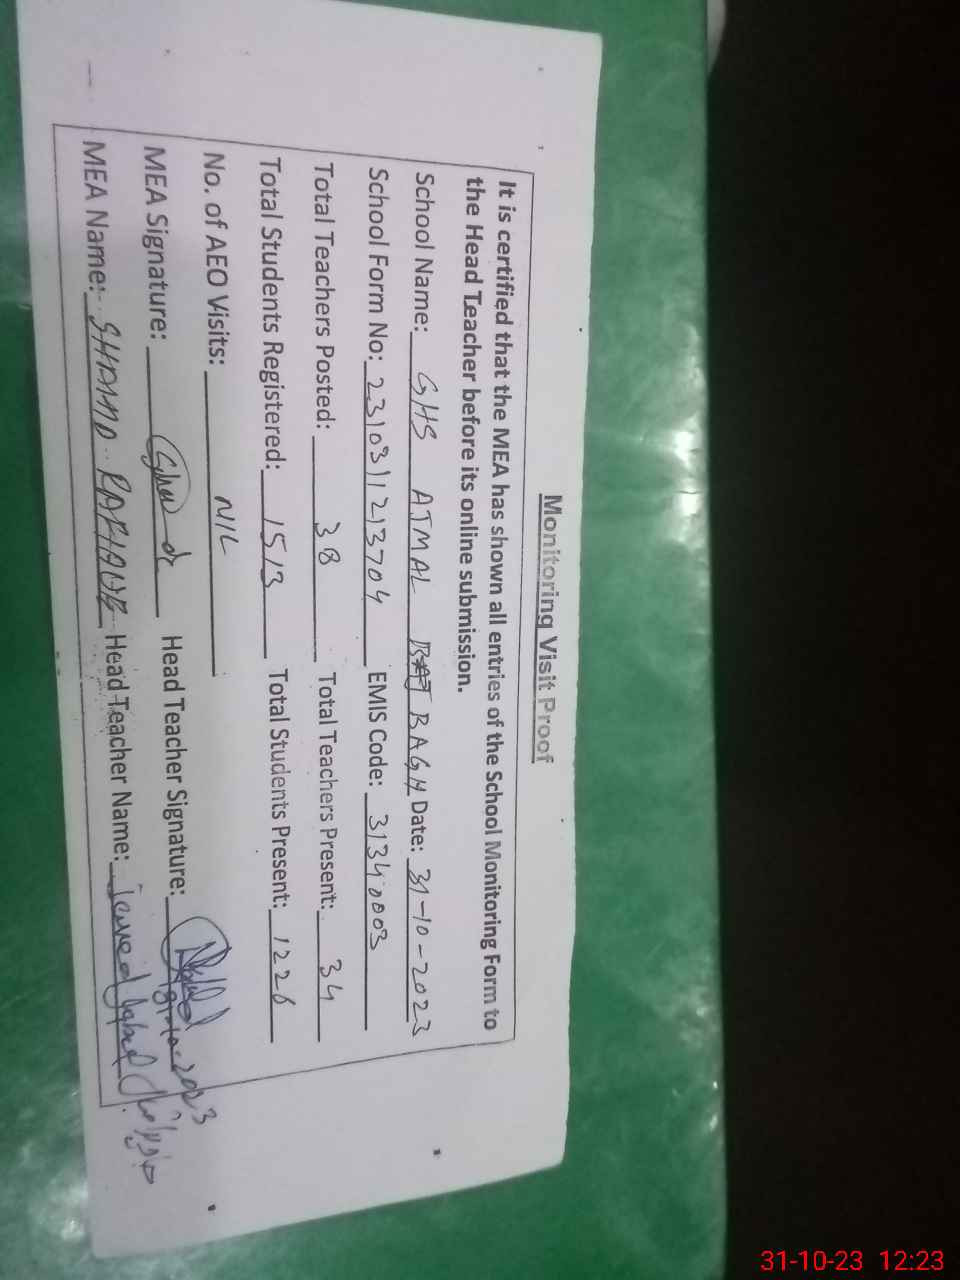 Monitoring Visit Proof
It is certified that the MEA has shown all entries of the School Monitoring Form to
the Head Teacher before its online submission.
School Name: GHS ATMAL BAGH Date: 31-10-2023
School Form No: 2310311213704 EMIS Code: 31340003
Total Teachers Posted: 38 Total Teachers Present: 34
Total Students Registered: 1513 Total Students Present: 1226
No. of AEO Visits: NIL
MEA Signature: Head Teacher Signature:
MEA Name: Head Teacher Name: Javed Iqbal
31-10-23 12:23